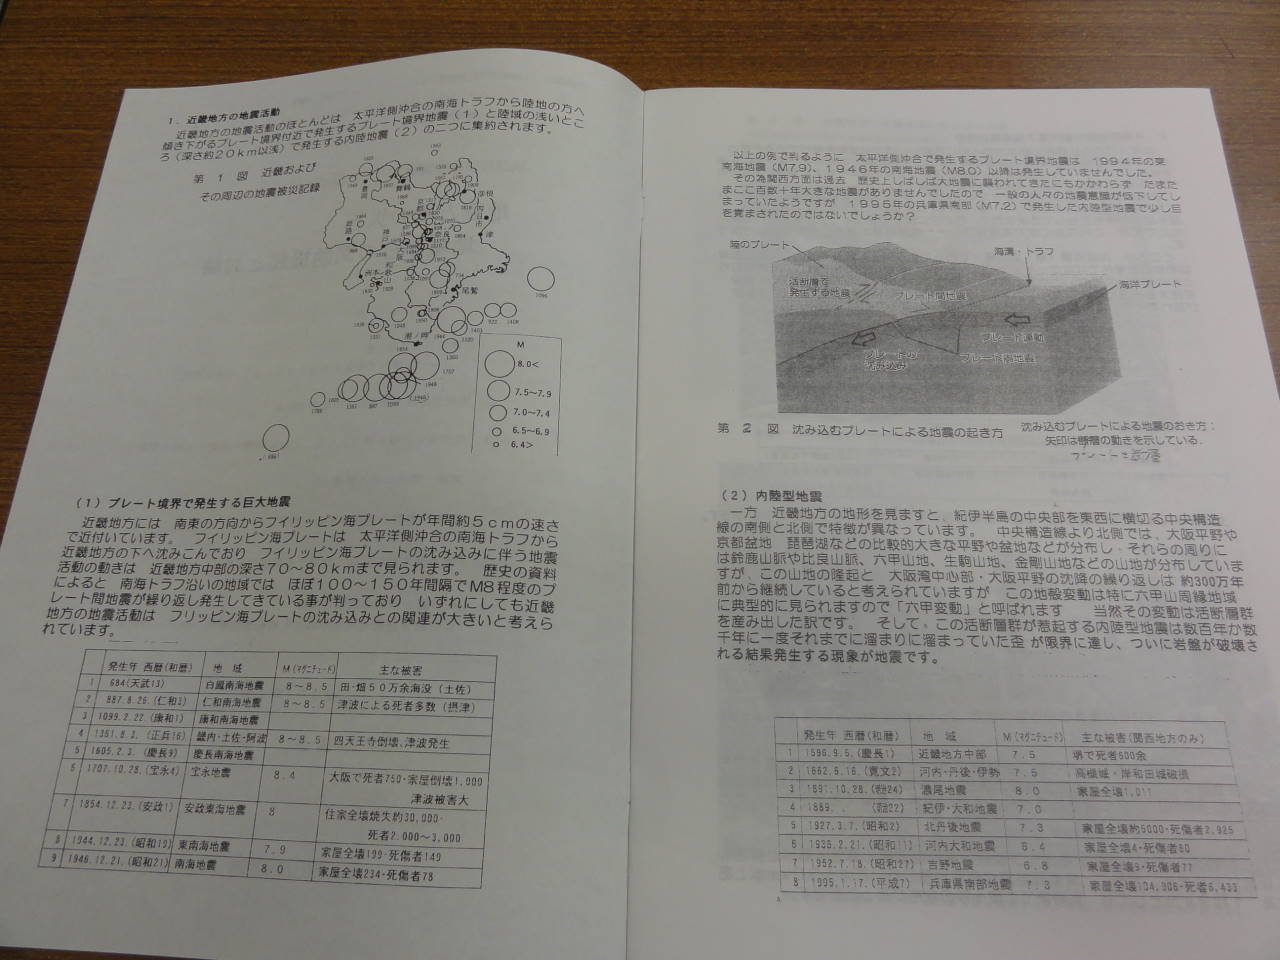 1．近畿地方の地震活動
近畿地方の地震活動のほとんどは　太平洋側沖合の南海トラフから陸地の方へ
傾き下がるプレート境界付近で発生するプレート境界地震（1）と陸域の浅いとこ
ろ（深さ約20km以浅）で発生する内陸地震（2）の二つに集約されます。
第　1　図　近畿および
その周辺の地震被災記録
豊岡
舞鶴
彦根
京都
四日市
津
姫路
神戸
大阪
奈良
洲本
和歌山
尾鷲
潮ノ岬
1096
1408
1707
1946
M
8.0<
7.5～7.9
7.0～7.4
6.5～6.9
6.4>
（1）プレート境界で発生する巨大地震
近畿地方には　南東の方向からフイリッピン海プレートが年間約5cmの速さ
で近付いています。　フイリッピン海プレートは　太平洋側沖合の南海トラフから
近畿地方の下へ沈みこんでおり　フイリッピン海プレートの沈み込みに伴う地震
活動の動きは　近畿地方中部の深さ70～80kmまで見られます。　歴史の資料
によると　南海トラフ沿いの地域では　ほぼ100～150年間隔でM8程度のプ
レート間地震が繰り返し発生してきている事が判っており　いずれにしても近畿
地方の地震活動は　フリッピン海プレートの沈み込みとの関連が大きいと考えら
れています。
発生年 西暦(和暦)　地　域　M(マグニチュード)　主な被害
1　684(天武13)　白鳳南海地震　8～8.5　田・畑50万余海没（土佐）
2　887.8.26.(仁和3)　仁和南海地震　8～8.5　津波による死者多数（摂津）
3　1099.2.22.(康和1)　康和南海地震
4　1361.8.3.（正兵16）　畿内・土佐・阿波　8～8.5　四天王寺倒壊、津波発生
5　1605.2.3.（慶長9）　慶長南海地震
6　1707.10.28.(宝永4)　宝永地震　8.4　大阪で死者750・家屋倒壊1,000
津波被害大
7　1854.12.23.(安政1)　安政東海地震　8　住家全壊焼失約30,000・
死者2,000～3,000
8　1944.12.23.(昭和19)　東南海地震　7.9　家屋全壊199・死傷者149
9　1946.12.21.(昭和21)　南海地震　8.0　家屋全壊234・死傷者78
以上の例で判るように　太平洋側沖合で発生するプレート境界地震は　1994年の東
南海地震（M7.9）、1946年の南海地震（M8.0）以降は発生していませんでした。
その為関西方面は過去　歴史上しばしば大地震に襲われてきたにもかかわらず　たまた
まここ百数十年大きな地震がありませんでしたので　一般の人々の地震意識が低下してし
まっていたようですが　1995年の兵庫県南部（M7.2）で発生した内陸型地震で少し目
を覚まされたのではないでしょうか？
陸のプレート
海溝・トラフ
活断層で
発生する地震
プレート間地震
海洋プレート
プレート運動
プレートの
沈み込み
プレート内地震
第　2　図　沈み込むプレートによる地震の起き方
沈み込むプレートによる地震のおき方：
矢印は断層の動きを示している．
（2）内陸型地震
一方　近畿地方の地形を見ますと、紀伊半島の中央部を東西に横切る中央構造
線の南側と北側で特徴が異なっています。　中央構造線より北側では、大阪平野や
京都盆地　琵琶湖などの比較的大きな平野や盆地などが分布し、それらの周りに
は鈴鹿山脈や比良山脈、六甲山地、生駒山地、金剛山地などの山地が分布していま
すが、この山地の隆起と　大阪湾中心部・大阪平野の沈降の繰り返しは 約300万年
前から継続していると考えられていますが　この地殻変動は特に六甲山周縁地域
に典型的に見られますので「六甲変動」と呼ばれます　　当然その変動は活断層群
を産み出した訳です。　そして、この活断層群が惹起する内陸型地震は数百年か数
千年に一度それまでに溜まりに溜まっていた歪 が限界に達し、ついに岩盤が破壊さ
れる結果発生する現象が地震です。
発生年 西暦(和暦)　地　域　M(マグニチュード)　主な被害(関西地方のみ)
1　1596.9.5.(慶長1)　近畿地方中部　7.5　堺で死者600余
2　1662.6.16.(寛文2)　河内・丹後・伊勢　7.6　高槻城・岸和田城破損
3　1891.10.28.(明治24)　濃尾地震　8.0　家屋全壊1,011
4　1889.　.(明治22)　紀伊・大和地震　7.0
5　1927.3.7.(昭和2)　北丹後地震　7.3　家屋全壊約5000・死傷者2,925
6　1936.2.21.(昭和11)　河内大和地震　6.4　家屋全壊4・死傷者60
7　1952.7.18.(昭和27)　吉野地震　6.8　家屋全壊9・死傷者77
8　1995.1.17.(平成7)　兵庫県南部地震　7.3　家屋全壊104,906・死者6,433